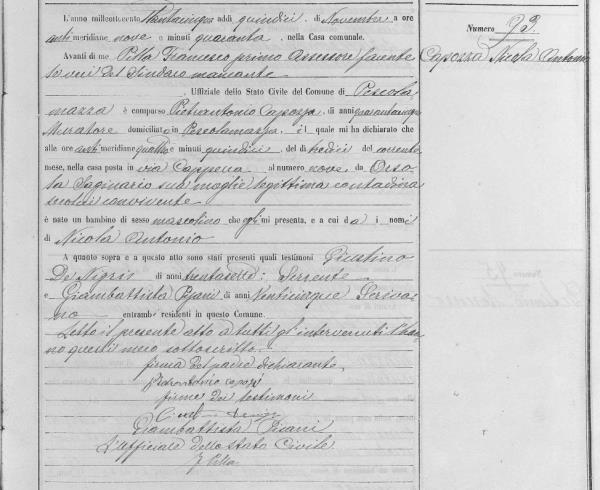 L'anno millottocento Trentacinque addi quindici di Novembre a ore
antimeridiane nove e minuti quaranta, nella Casa comunale.
Numero 93.
Capozza Nicola Antonio
Avanti di me Pilla Francesco primo Assessore facente
le veci del Sindaco mancante
Uffiziale dello Stato Civile del Comune di Pescola
mazza è comparso Pietrantonio Capozza, di anni quarantacinque
Muratore domiciliato in Pescolamazza, il quale mi ha dichiarato che
alle ore antimeridiane quattro e minuti quindici, del dì tredici del corrente
mese, nella casa posta in via Cappella al numero nove, da Orso
la Saginario sua moglie legittima contadina
seco lui convivente
è nato un bambino di sesso mascolino che egli mi presenta, e a cui dà i nomi
di Nicola Antonio
A quanto sopra e a questo atto sono stati presenti quali testimoni Giustino
De Nigris di anni trentasette: Serrente
e Giambattista Pisani di anni Venticinque Scriva
no entrambi residenti in questo Comune.
Letto il presente atto a tutti gl'intervenuti l'han
no questi meco sottoscritto.
firma del padre dichiarante,
Pietrantonio Capozzi
firme dei testimoni
Giambattista Pisani
L'Uffiziale dello Stato Civile
F Pilla